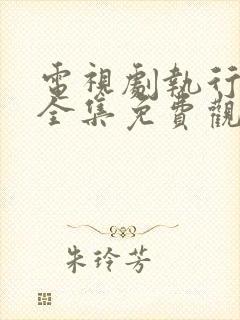 電視劇執行
全集免費觀
朱玲芳